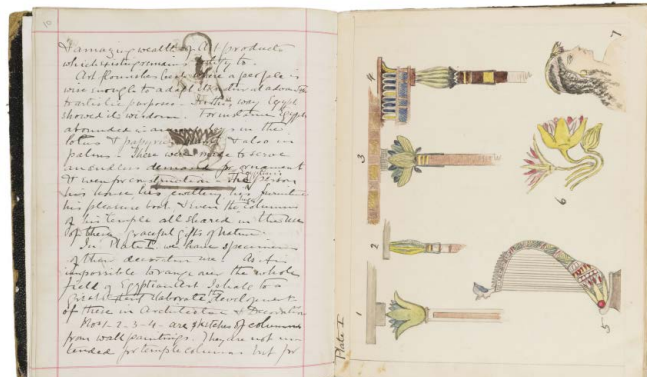 & amazing wealth of Art products
which yet remain to
Art flourishes best where a people is
wise enough to adapt its natural advan
to artistic purposes. In this way Egypt
showed its wisdom. For instance Egypt
abounded in in the
lotus & papyrus & also in
palms. These were made to serve
an endless demand for ornament
& even for construction. The Egyptian's
his house his his furniture
his pleasure boat & even the columns
of his temple all shared in the use
of these graceful gifts of Nature.
In Plate I we have specimens
of their decorative use. As it is
impossible to range over the whole
field of Egyptian Art I shall to a
elaborate development
of these in Architecture & Decoration
Nos 1-2-3-4- are sketches of columns
from wall paintings. They are not in-
tended for temple columns but for
Plate I
1
2
3
4
5
6
7